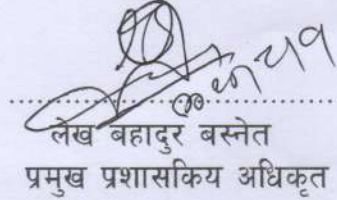 लेख बहादुर बस्नेत
प्रमुख प्रशासकिय अधिकृत